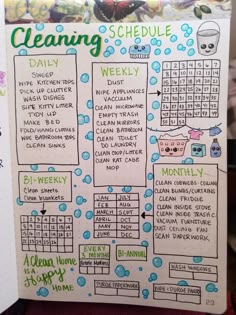 Cleaning SCHEDULE
DAILY
SWEEP
WIPE KITCHEN TOPS
PICK UP CLUTTER
WASH DISHES
SIFE LITTER
TIDY UP
MAKE BED
FOLD/HANG CLOTHES
WIPE BATHROOM
CLEAN SINKS
WEEKLY
DUST
WIPE APPLIANCES
VACUUM
CLEAN MICROWAVE
EMPTY TRASH
CLEAN MIRRORS
CLEAN BATHROOM
CLEAN TOILET
DO LAUNDRY
CLEAN OUT LITTER
CLEAN RAT CAGE
MOP
BI-WEEKLY
CLEAN SHEETS
CLEAN BLANKETS
MONTHLY
CLEAN COBWEBS CEILING
CLEAN BLINDS/CURTAINS
CLEAN FRIDGE
CLEAN INSIDE STOVE
CLEAN INSIDE TRASH C
VACUUM FURNITURE
DUST CEILING FAN
SCAN PAPERWORK
JAN JULY
FEB AUG
MARCH SEPT
APRIL OCT
MAY NOV
JUNE DEC
EVERY
3 MONTHS
BI-ANNUAL
WASH WINDOWS
A Clean
Home
is a
Happy
Home